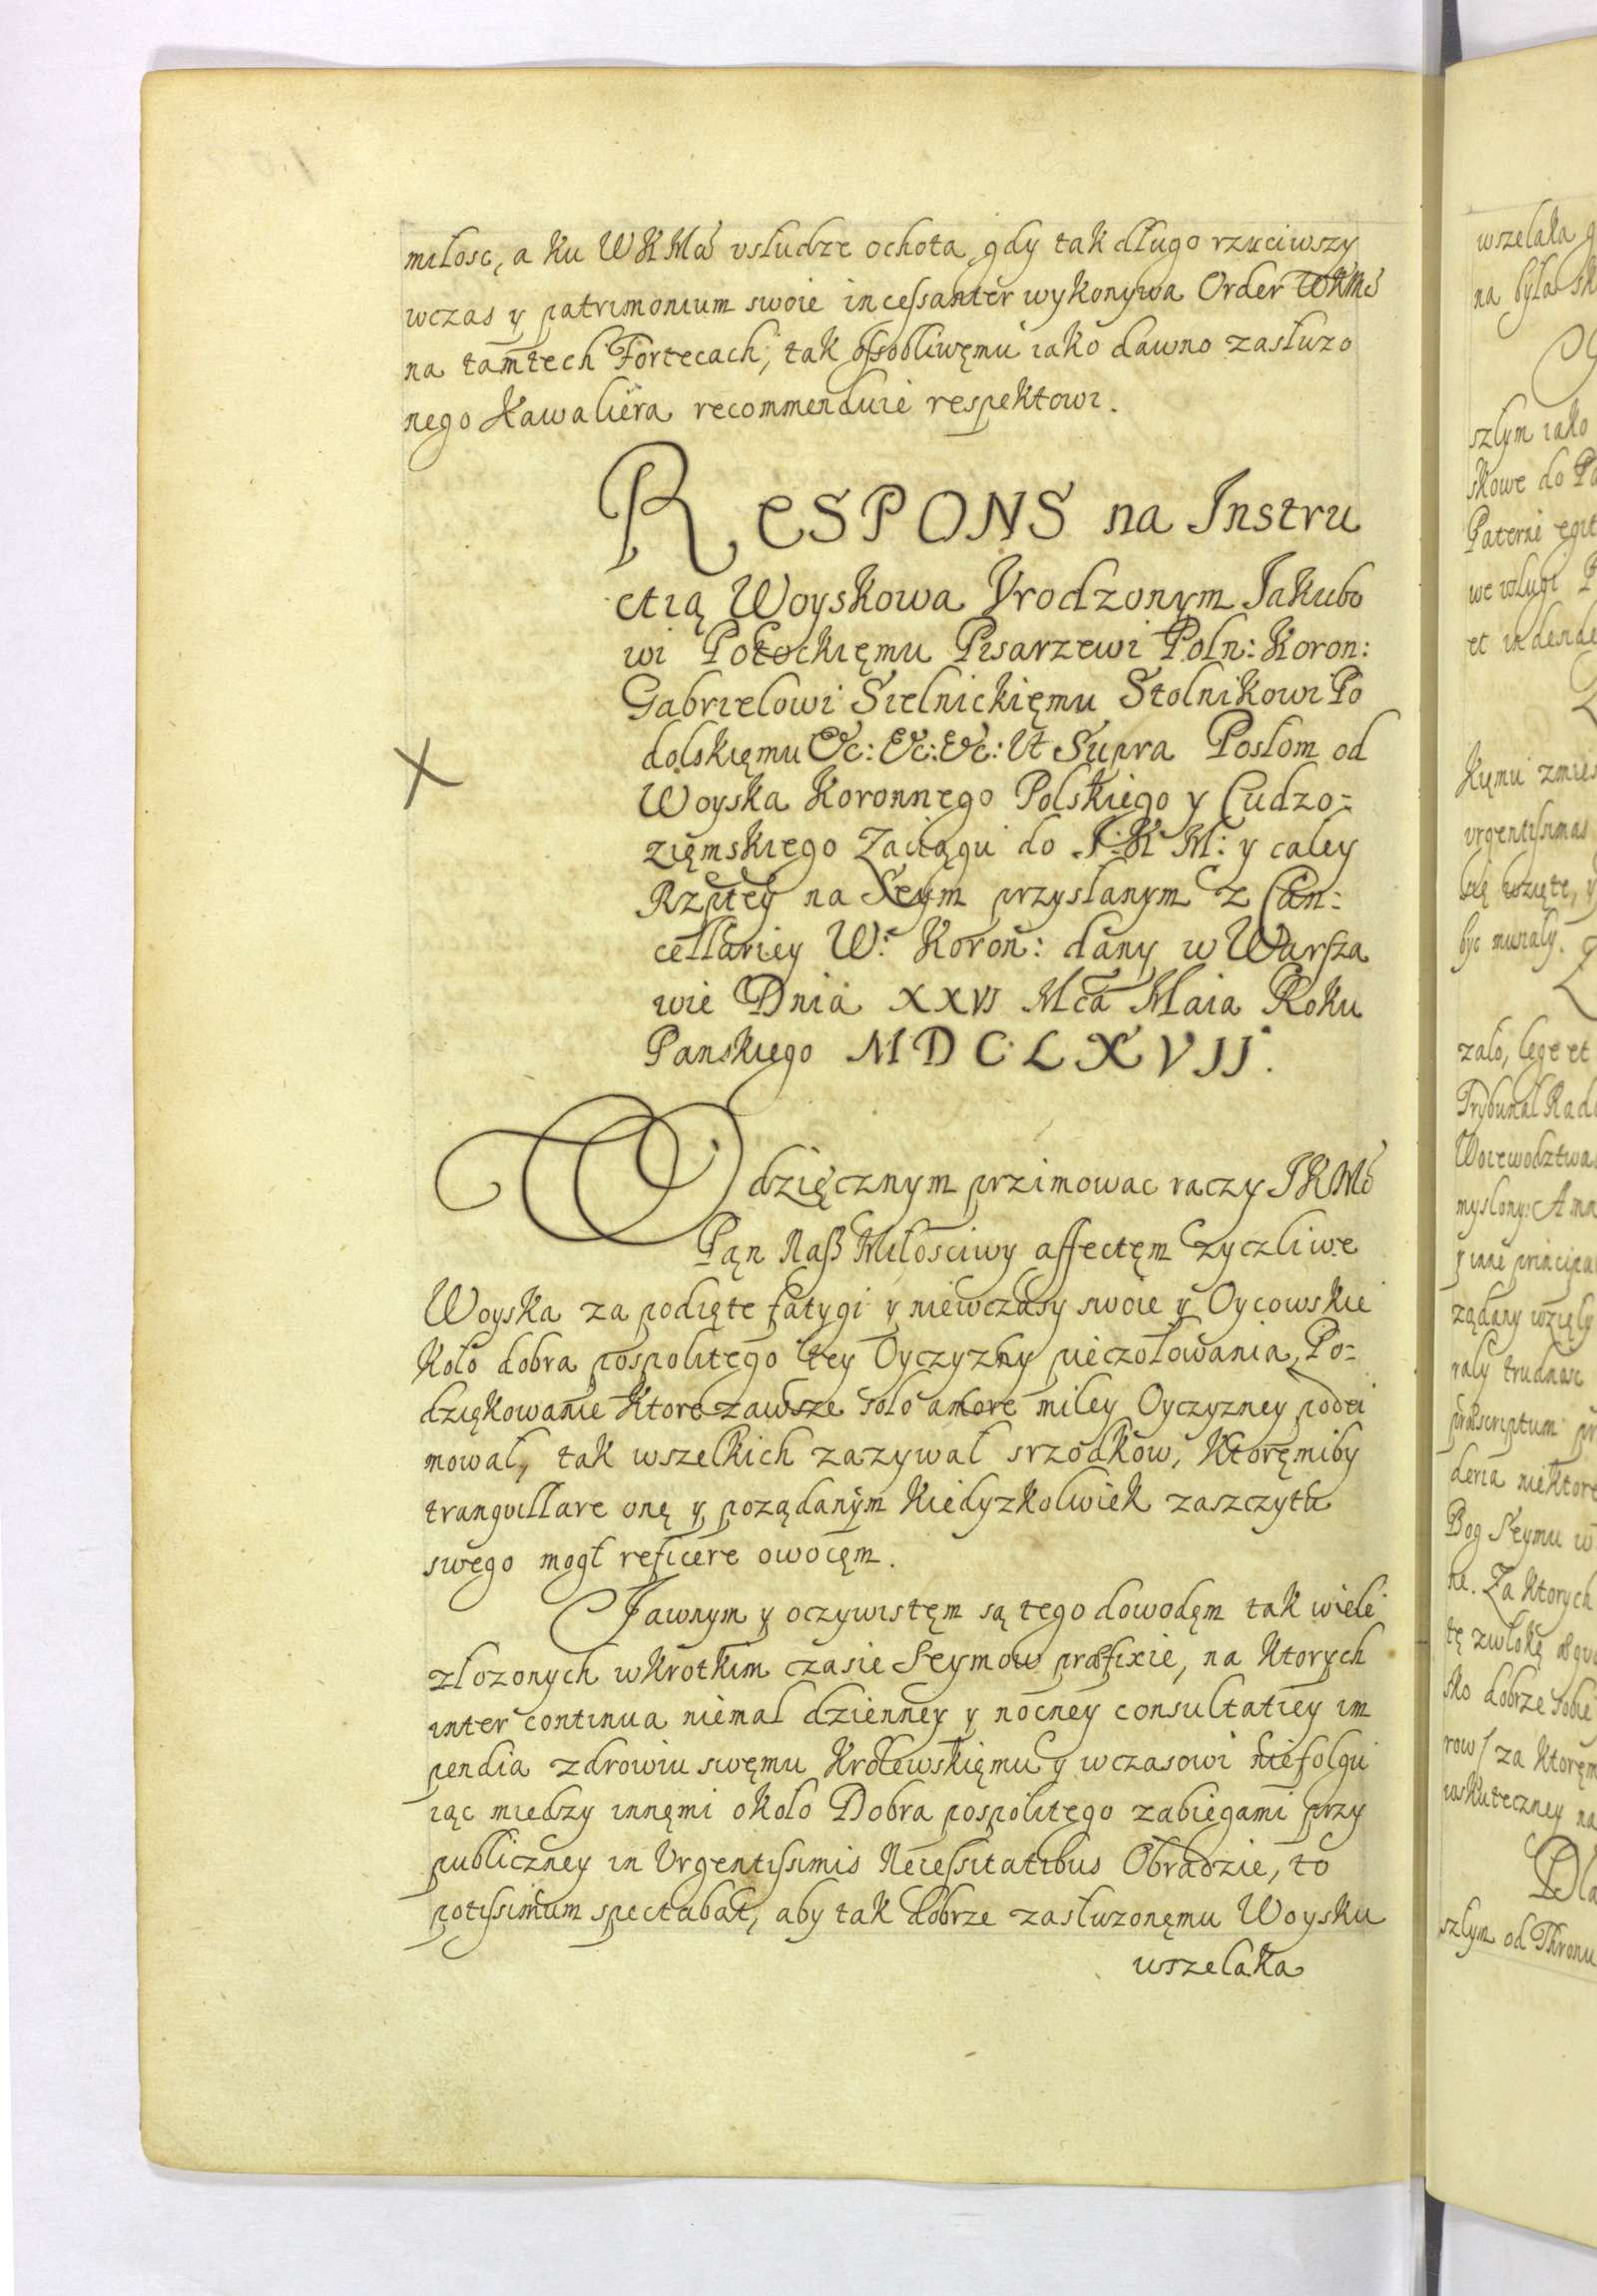 miłosc, a ku WKMci vsłudze ochota, gdy tak długo rzuciwszy
wczas y patrimonium swoie incessanter wykonywa Order WKMci
na tamtech Fortecach, tak ossobliwęmu iako dawno zasłuzo
nego Kawaliera recommenduie respektowi.
RESPONS na Instru
ctią Woyskowa Vrodzonym Jakubo
wi Potockięmu Pisarzewi Poln: Koron:
Gabrielowi Sielnickięmu Stolnikowi Po
dolskięmu &c: &c: &c: Ut Supra Posłom od
Woyska Koronnego Polskiego y Cudzo=
zięmskiego Zaciągu do J: K M: y całey
Rzptey na Seym przysłanym z Can:
cellariey W: Koron: dany w Warsza
wie Dnia XXVI Mca Maia Roku
Panskiego MDCLXVII.
Wdzięcznym przimowac raczy JKMc
Pąn Nasz Miłosciwy affectęm zyczliwe
Woyska za podięte fatygi y niewczasy swoie y Oycowskie
koło dobra pospolitego tey Oyczyzny pieczołowania, Po=
dziękowanie ktore zawsze solo amore miley Oyczyzney podei
mował, tak wszelkich zazywał srzodkow, ktoręmiby
tranquillare onę y poządanym kiedyzkolwiek zaszczytu
swego mogł reficere owocęm.
Jawnym y oczywistęm są tego dowodęm tak wiele
złozonych wkrotkim czasie Seymow præfixie, na ktorych
inter continua niemal dzienney y nocney consultatiey im
pendia zdrowiu swęmu Krolewskięmu y wczasowi niefolgu
iąc miedzy innęmi około Dobra pospolitego zabiegami przy
publiczney in Urgentissimis Necessitatibus Obradzie, to
potissimum spectabat, aby tak dobrze zasłuzonęmu Woysku
wszelaka
wszelaka
na była
szłym iako
skowe do
Paterni
we usługi
et
kięmu
urgentissimas
byc musiały.
zało, lege et
Trybunał
Woiewodztwa
myslony:
y inne
ządany wzięły
rały trudnosc
præscriptum
deria niektore
Bog Seymu w
ne. Za ktorych
tę zwłokę
sko dobrze sobie
row/ za ktoręm
uskuteczney na
Dla
szłym od Thronu